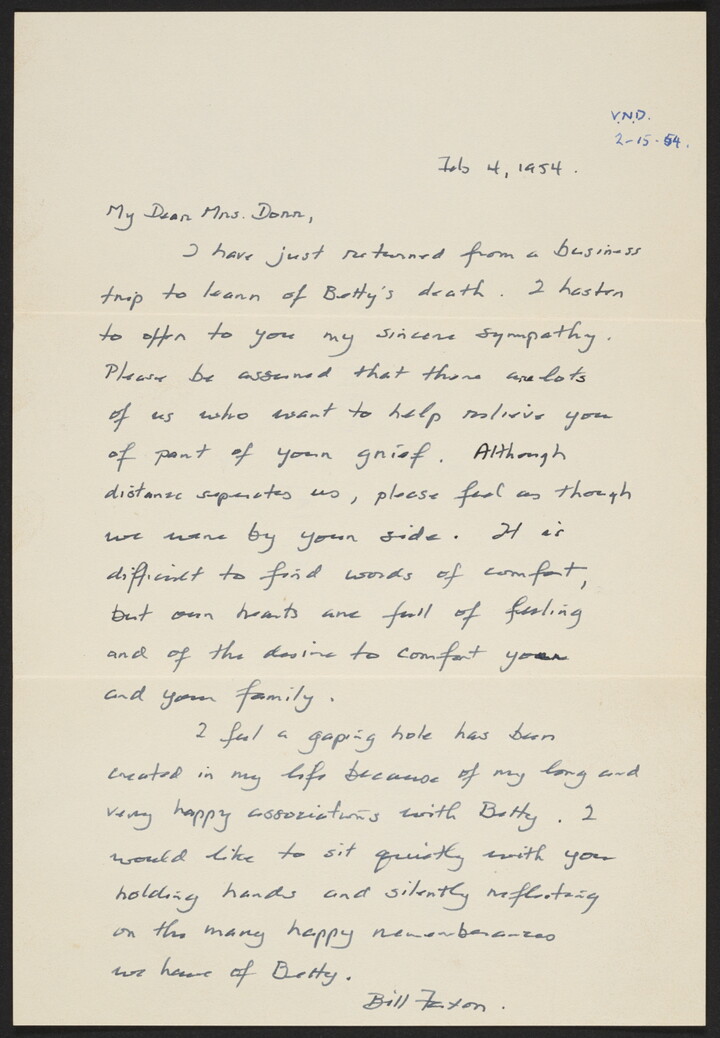 V.N.D.
2-15-54.
Feb 4, 1954.
My Dear Mrs. Donn,
I have just returned from a business
trip to learn of Betty's death. I hasten
to offer to you my sincere sympathy.
Please be assured that there are lots
of us who want to help relieve you
of part of your grief. Although
distance separates us, please feel as though
we were by your side. It is
difficult to find words of comfort,
but our hearts are full of feeling
and of the desire to comfort you
and your family.
I feel a gaping hole has been
created in my life because of my long and
very happy associations with Betty. I
would like to sit quietly with you
holding hands and silently reflecting
on the many happy rememberances
we have of Betty.
Bill Faxon.